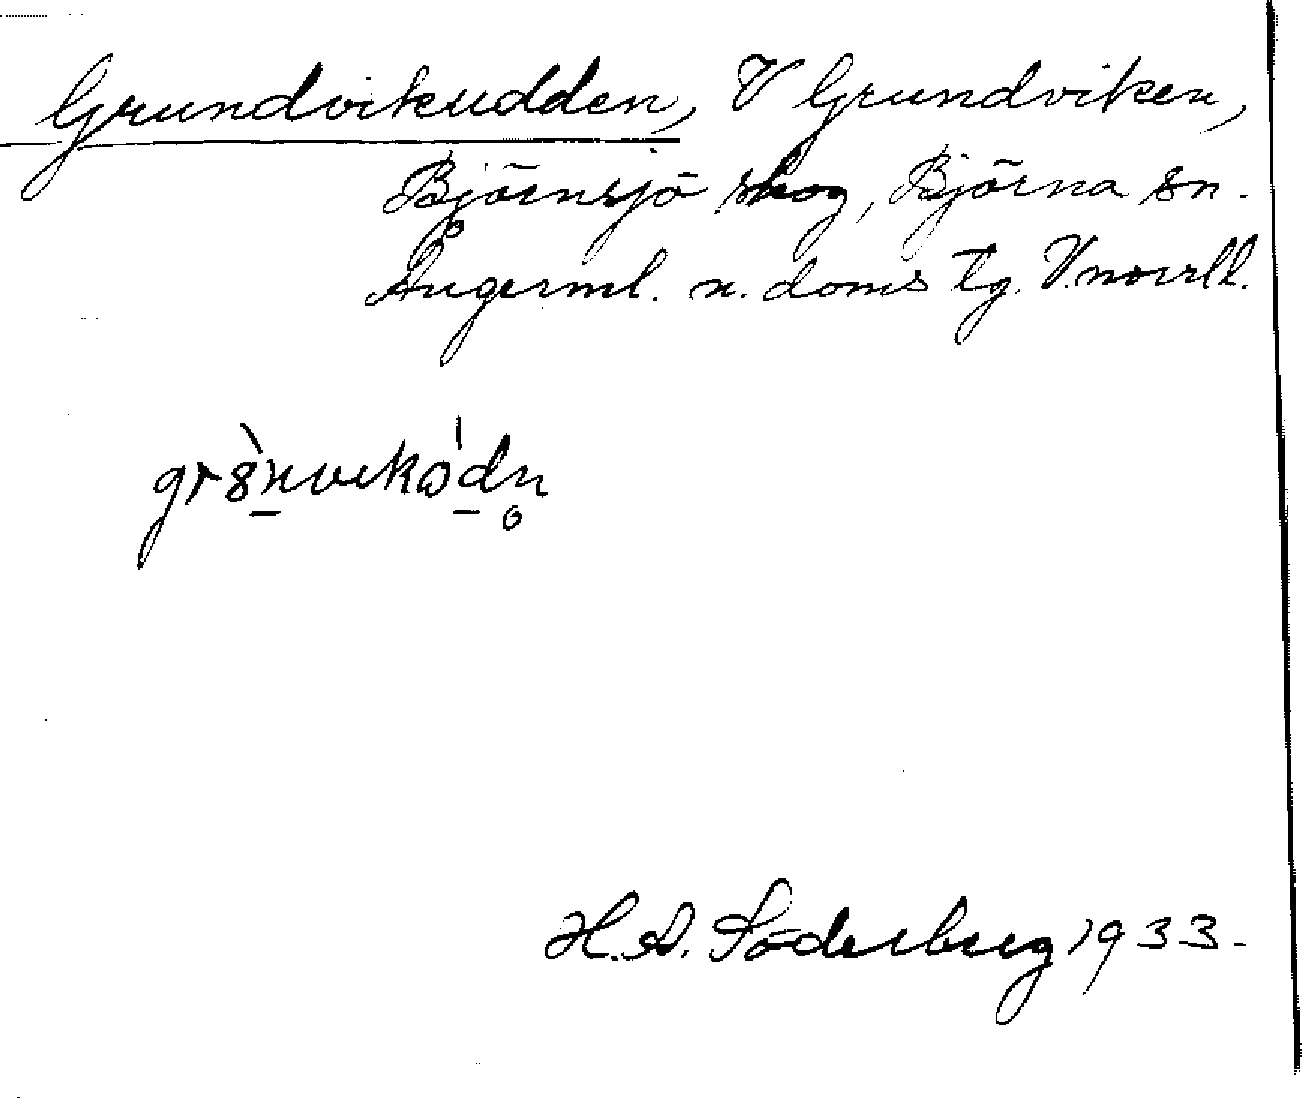 Grundvikudden, V Grundviken,
Björnsjö skog, Björna sn.
Ångerml. n. doms tg. V.norrll.
gr8̀nvekω̍dn̥
H.A. Söderberg 1933.